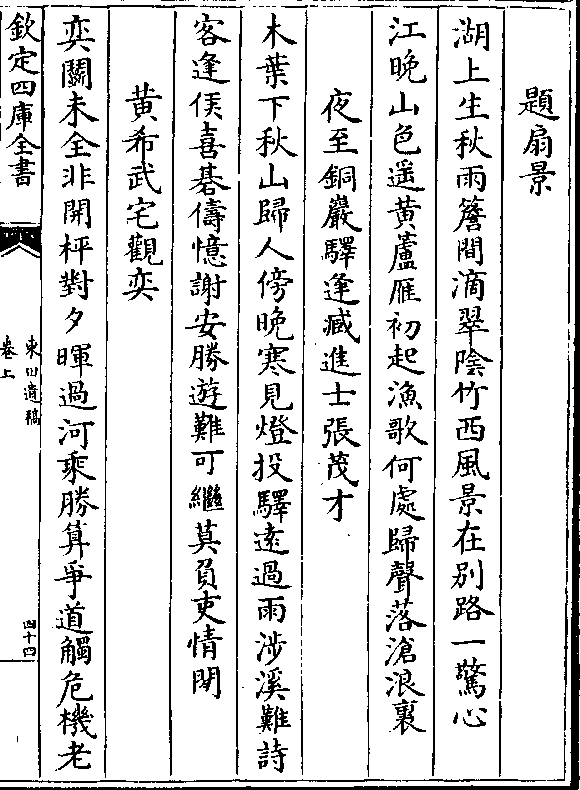 題扇景
湖上生秋雨簷間滴翠陰竹西風景在別路一驚心
江晩山色遥黄蘆雁初起漁歌何處歸聲落滄浪裏
夜至銅巖驛逢臧進士張茂才
木葉下秋山歸人傍晩寒見燈投驛逺過雨涉溪難詩
客逢侯喜碁儔憶謝安勝遊難可繼莫負吏情閒
黄希武宅觀奕
奕闗未全非開枰對夕暉過河乘勝算爭道觸危機老
欽定四庫全書
東田遺稿
卷上
四十四